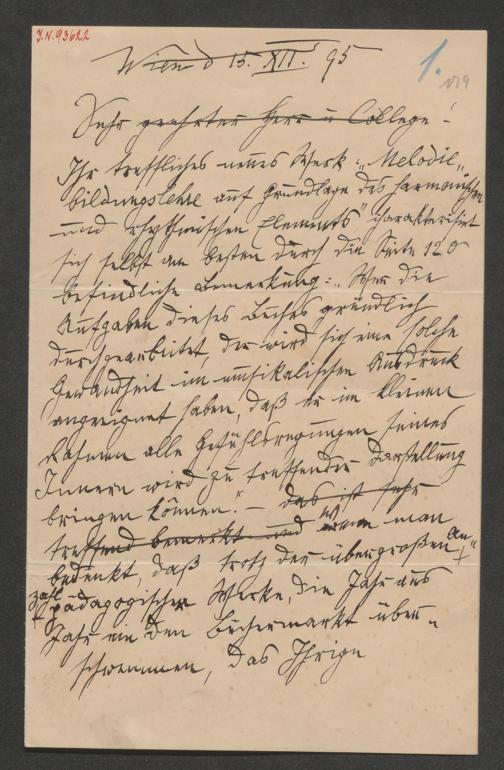 J.N. 93622
1.
Wien d 15. XII. 95
Sehr geehrter Herr u College!
Ihr treffliches neues Werk: „Melodie-
bildungslehre auf Grundlage des harmonischen
und rhythmischen Elements" charakterisirt
sich selbst am besten durch die Seite 120
befindliche Bemerkung: „Wer die
Aufgaben dieses Buches gründlich
durchgearbeitet, der wird sich eine solche
Gewandheit im musikalischen Ausdruck
angeeignet haben, daß er im kleinen
Rahmen alle Gefühlsregungen seines
Innern wird zu treffender Darstellung
bringen können." – das ist sehr
treffend bemerkt und wenn man
bedenkt, daß trotz der übergroßen An-
zahl pädagogischer Werke, die Jahr aus
Jahr ein den Büchermarkt über-
schwemmen, das Ihrige